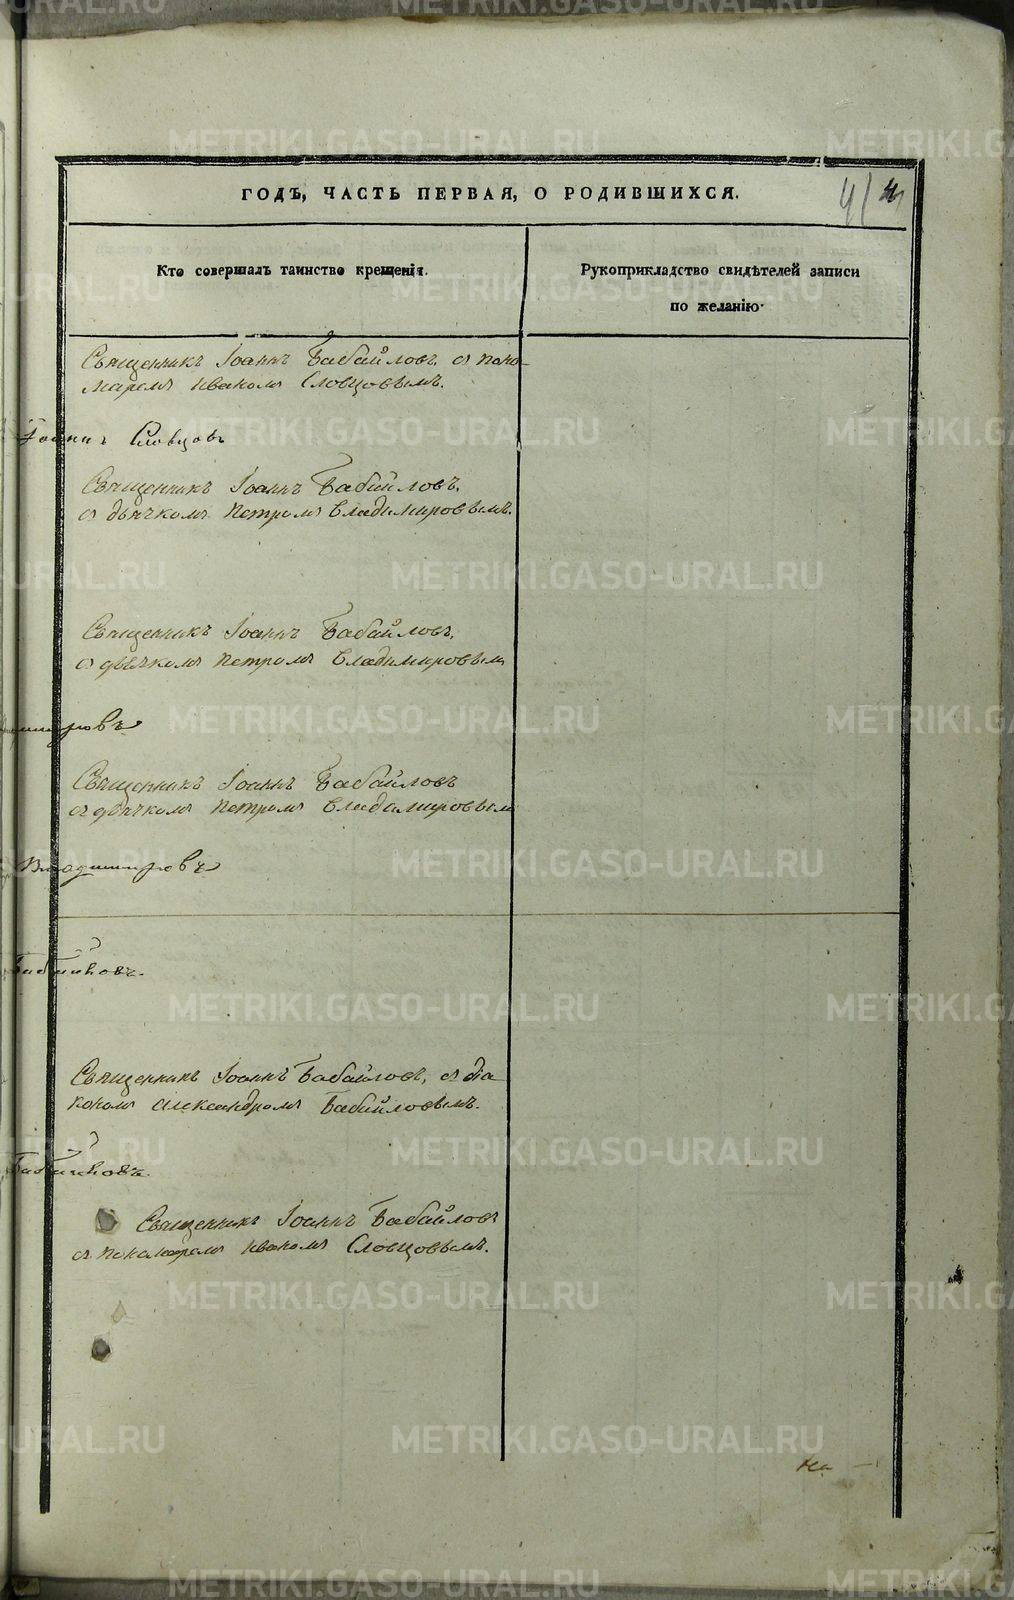 ГОДЪ, ЧАСТЬ ПЕРВАЯ, О РОДИВШИХСЯ.
41
Кто совершалъ таинство крещенія.
Рукоприкладство свидѣтелей записи
по желанію.
Священникъ Іоаннъ Бабайловъ съ поно-
маремъ Иваномъ Словцовымъ.
Іоаннъ Словцовъ
Священникъ Іоаннъ Бабайловъ,
съ дьячкомъ Петромъ Владимировымъ.
Священникъ Іоаннъ Бабайловъ,
съ дьячкомъ Петромъ Владимировымъ
Священникъ Іоаннъ Бабайловъ
съ дьячкомъ Петромъ Владимировымъ
Владимировъ
Священникъ Іоаннъ Бабайловъ, съ діа-
кономъ Александромъ Бабайловымъ.
Священникъ Іоаннъ Бабайловъ
съ пономаремъ Иваномъ Словцовымъ.
METRIKI.GASO-URAL.RU